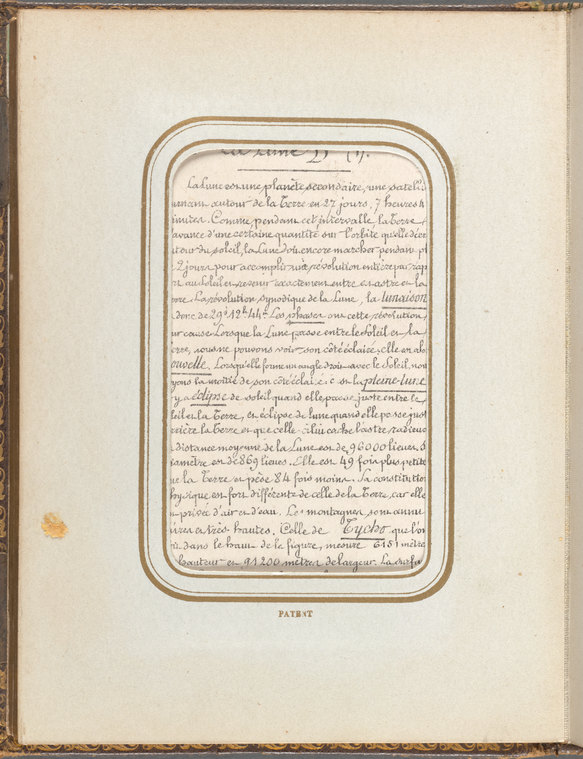 La Lune D (1).
La Lune est une planète secondaire, une satelli
urnant autour de la Terre en 27 jours, 7 heures 4
inutes. Comme pendant cet intervalle la Terre
avance d'une certaine quantité sur l'orbite qu'elle décri
utour du soleil, la Lune doit encore marcher pendant pl
2 jours pour accomplir une révolution entière par rap
rt au Soleil et revenir exactement entre cet astre et la
erre. La révolution synodique de la Lune, la lunaison
donc de 29j 12h 44m. Les phases ont cette révolution
ur cause. Lorsque la Lune passe entre le Soleil et la
erre, nous ne pouvons voir son côté éclairé; elle est
ouvelle. Lorsqu'elle forme un angle droit avec le Soleil, nou
yons la moitié de son côté éclairé: la pleine-lune
y a éclipse de soleil quand elle passe juste entre le
oleil et la Terre, et éclipse de lune quand elle passe just
rrière la Terre et que celle-ci lui cache l'astre radieux
distance moyenne de la Lune est de 96000 lieues. S
iamètre est de 869 lieues. Elle est 49 fois plus petite
ue la Terre et pèse 84 fois moins. Sa constitutio
hysique est fort différente de celle de la Terre, car elle
t privée d'air et d'eau. Les montagnes sont annu
ires et très hautes. Celle de Tycho que l'on
it dans le haut de la figure, mesure 6151 mètre
hauteur et 91200 mètres de largeur. La surfa
PATENT